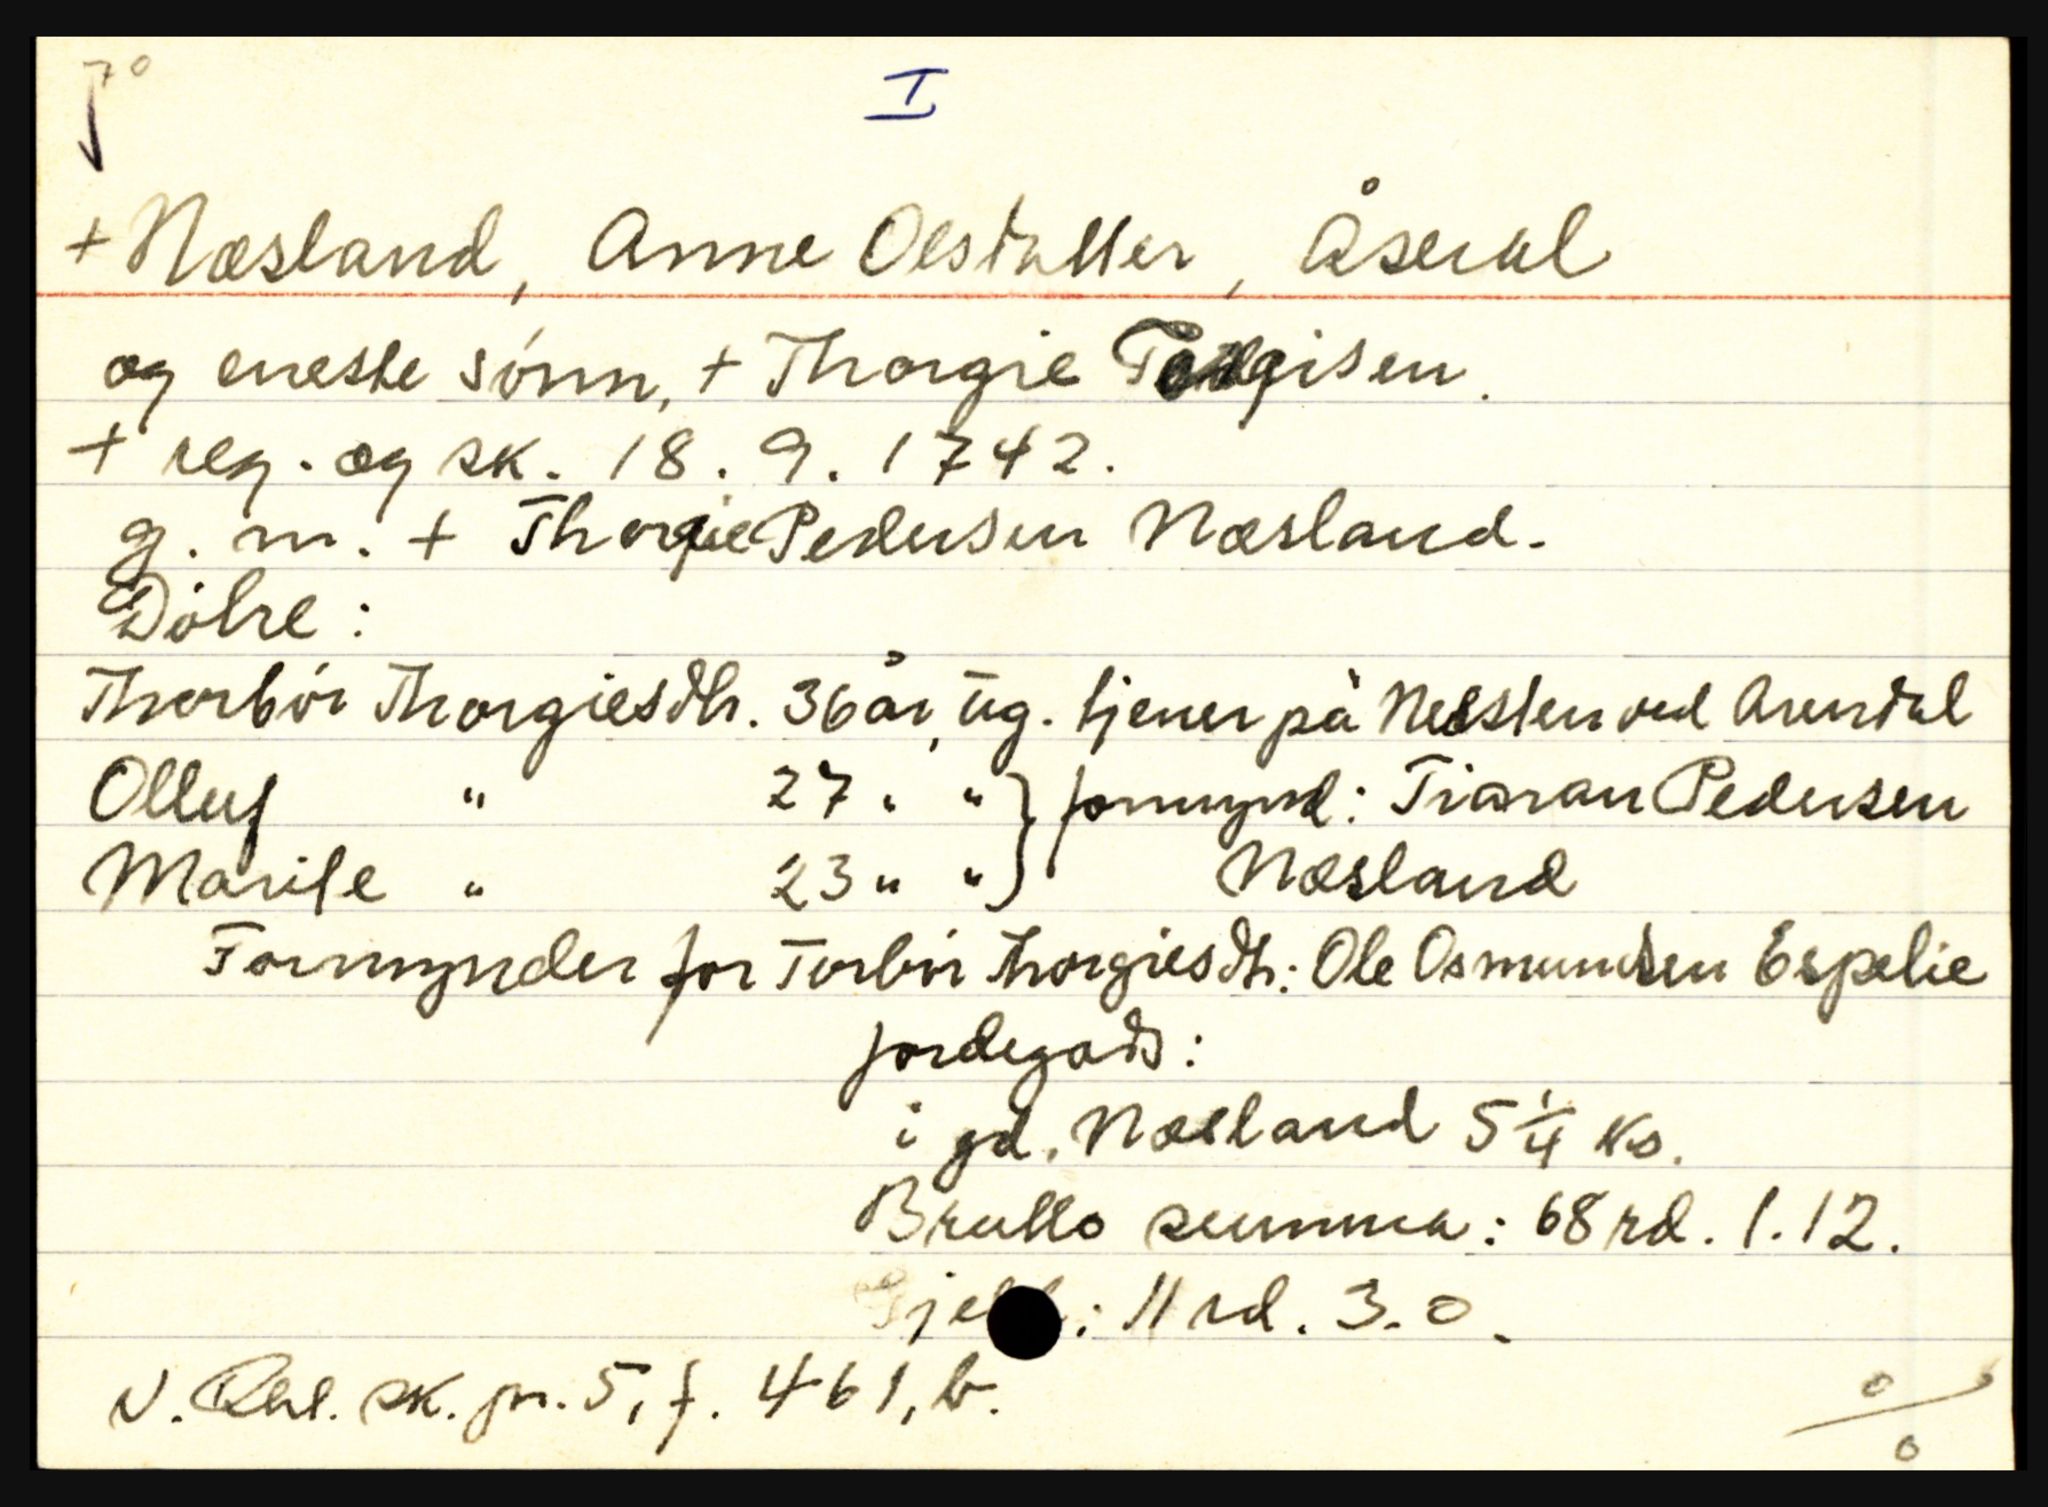 I
+ Næsland, Anne Olsdatter, Åseral
og eneste sønn, + Thorgie Torgisen.
+ reg. og sk. 18. 9. 1742.
g. m. + Thorgie Pedersen Næsland.
Døtre:
Thorbør Thorgiesdtr. 36 år, ug. tjener på Nesten ved Arendal
Olluf " 27 " " } formynd: Tiaran Pedersen
Marite " 23 " " } Næsland
Formynder for Torbør Thorgiesdtr: Ole Osmundsen Espelie
Jordegods:
i gd. Næsland 5 1/4 ks.
Brutto summa: 68 rd. 1. 12.
Gjeld: 11 rd. 3. 0.
N. Rbl. sk. pr. 5, f. 461, b.